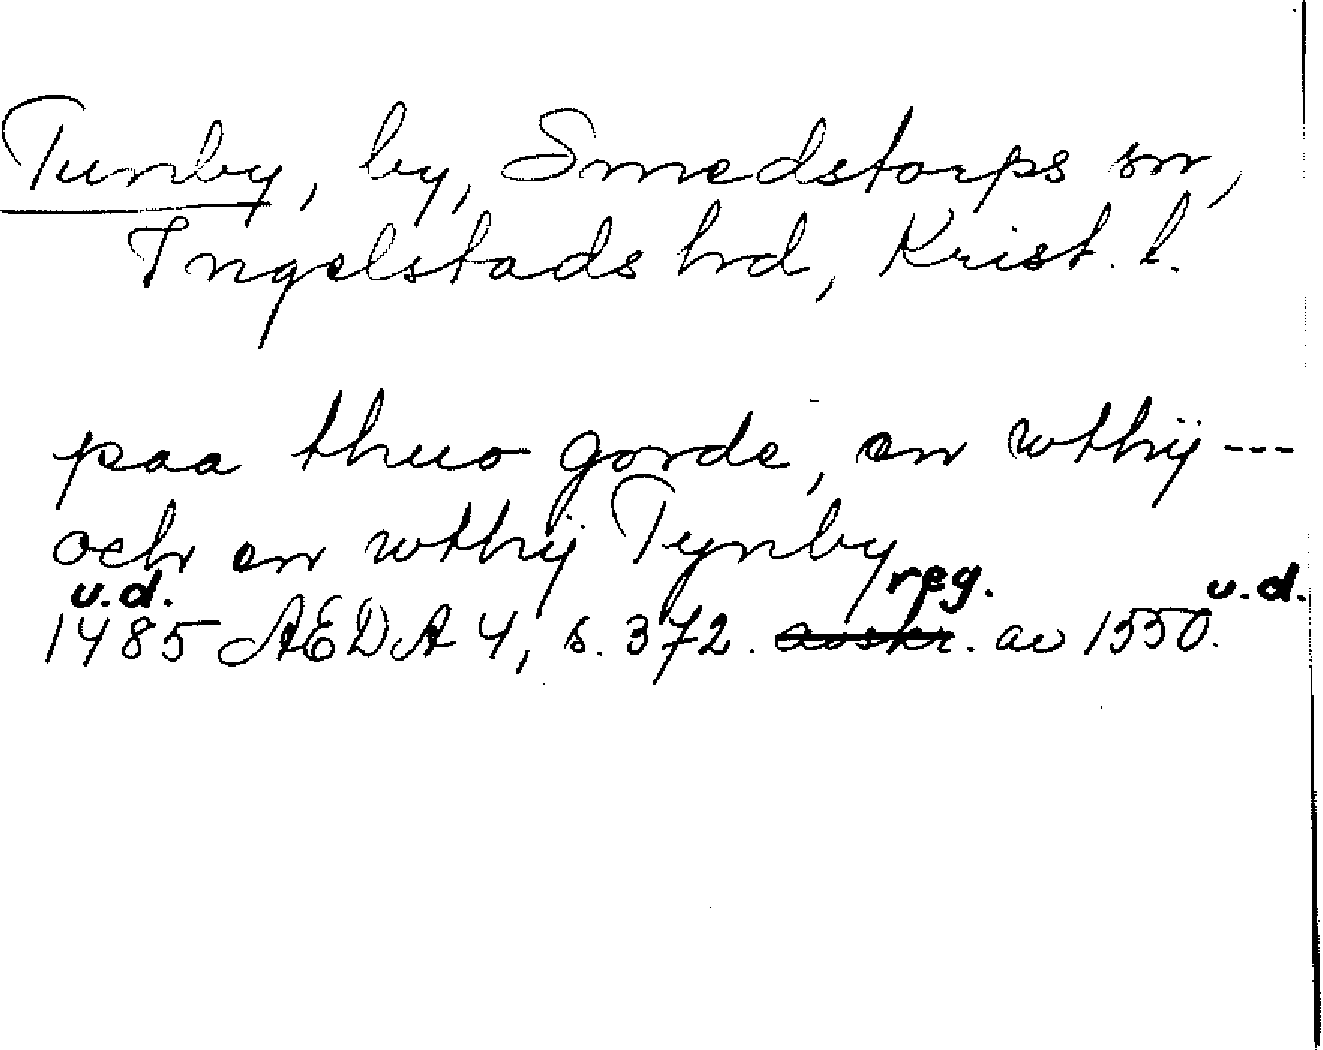 Tumby, by, Smedstorps sn,
Ingelstads hd, Krist. l.
paa thuo gorde, en wthij ---
och en wthij Tynby
u.d. reg. u.d.
1485 AEDA 4, s. 372. avskr. av 1550.